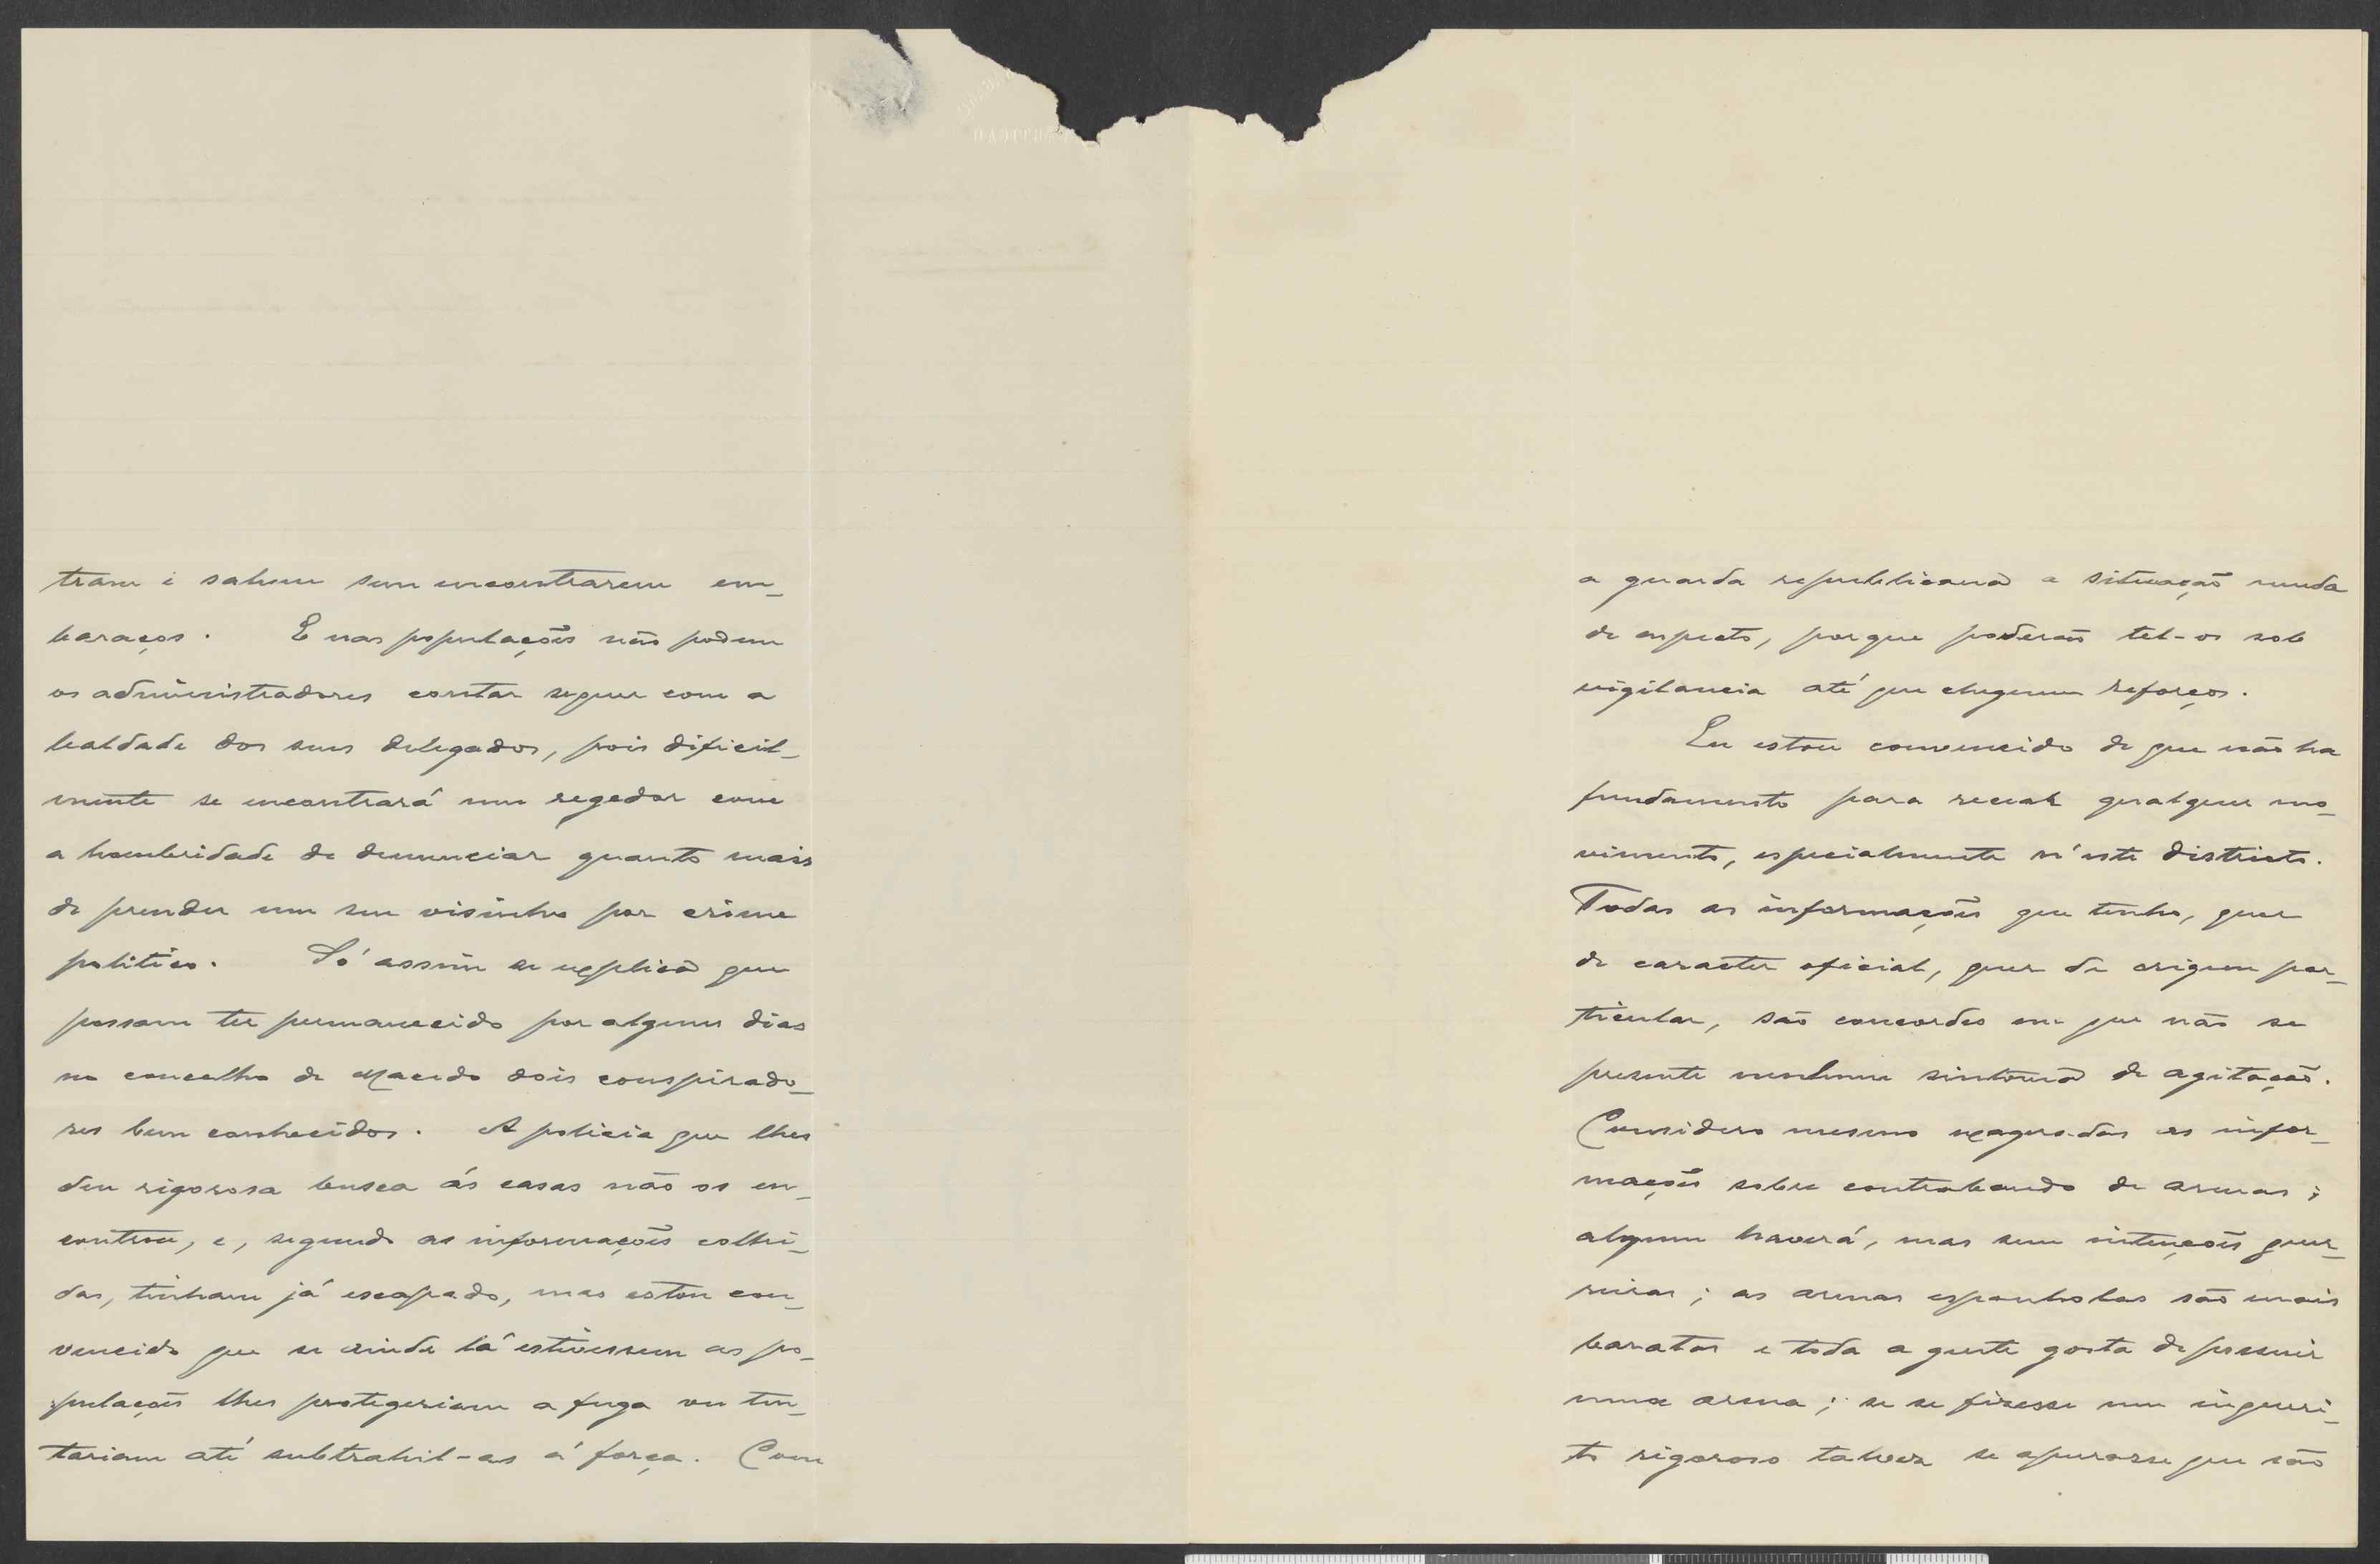 tram e sahem sem encontrarem em-
baraços. E nas populações não podem
os administradores contar sequer com a
lealdade dos seus delegados, pois dificil-
mente se encontrará um regedor com
a hombridade de denunciar quanto mais
de prender um seu visinho por crime
politico. Só assim se explica que
possam ter permanecido por alguns dias
no concelho de Macedo dois conspirado-
res bem conhecidos. A policia que lhes
deu rigorosa busca ás casas não os en-
controu, e, segundo as informações colhi-
das, tinham já escapado, mas estou con-
vencido que se ainda lá estivessem as po-
pulações lhes protegeriam a fuga ou ten-
tariam até subtrahil-as á força. Com
a guarda republicana a situação muda
de aspecto, porque poderão tel-os sob
vigilancia até que cheguem reforços.
Eu estou convencido de que não ha
fundamento para recear qualquer mo-
vimento, especialmente n'este districto.
Todas as informações que tenho, quer
de caracter oficial, quer de origem par-
ticular, são concordes em que não se
presente nenhum sintoma de agitação.
Considero mesmo exageradas as infor-
mações sobre contrabando de armas;
algum haverá, mas sem intenções guer-
reiras; as armas espanholas são mais
baratas e toda a gente gosta de possuir
uma arma; se se fizesse um inqueri-
to rigoroso talvez se apurasse que são